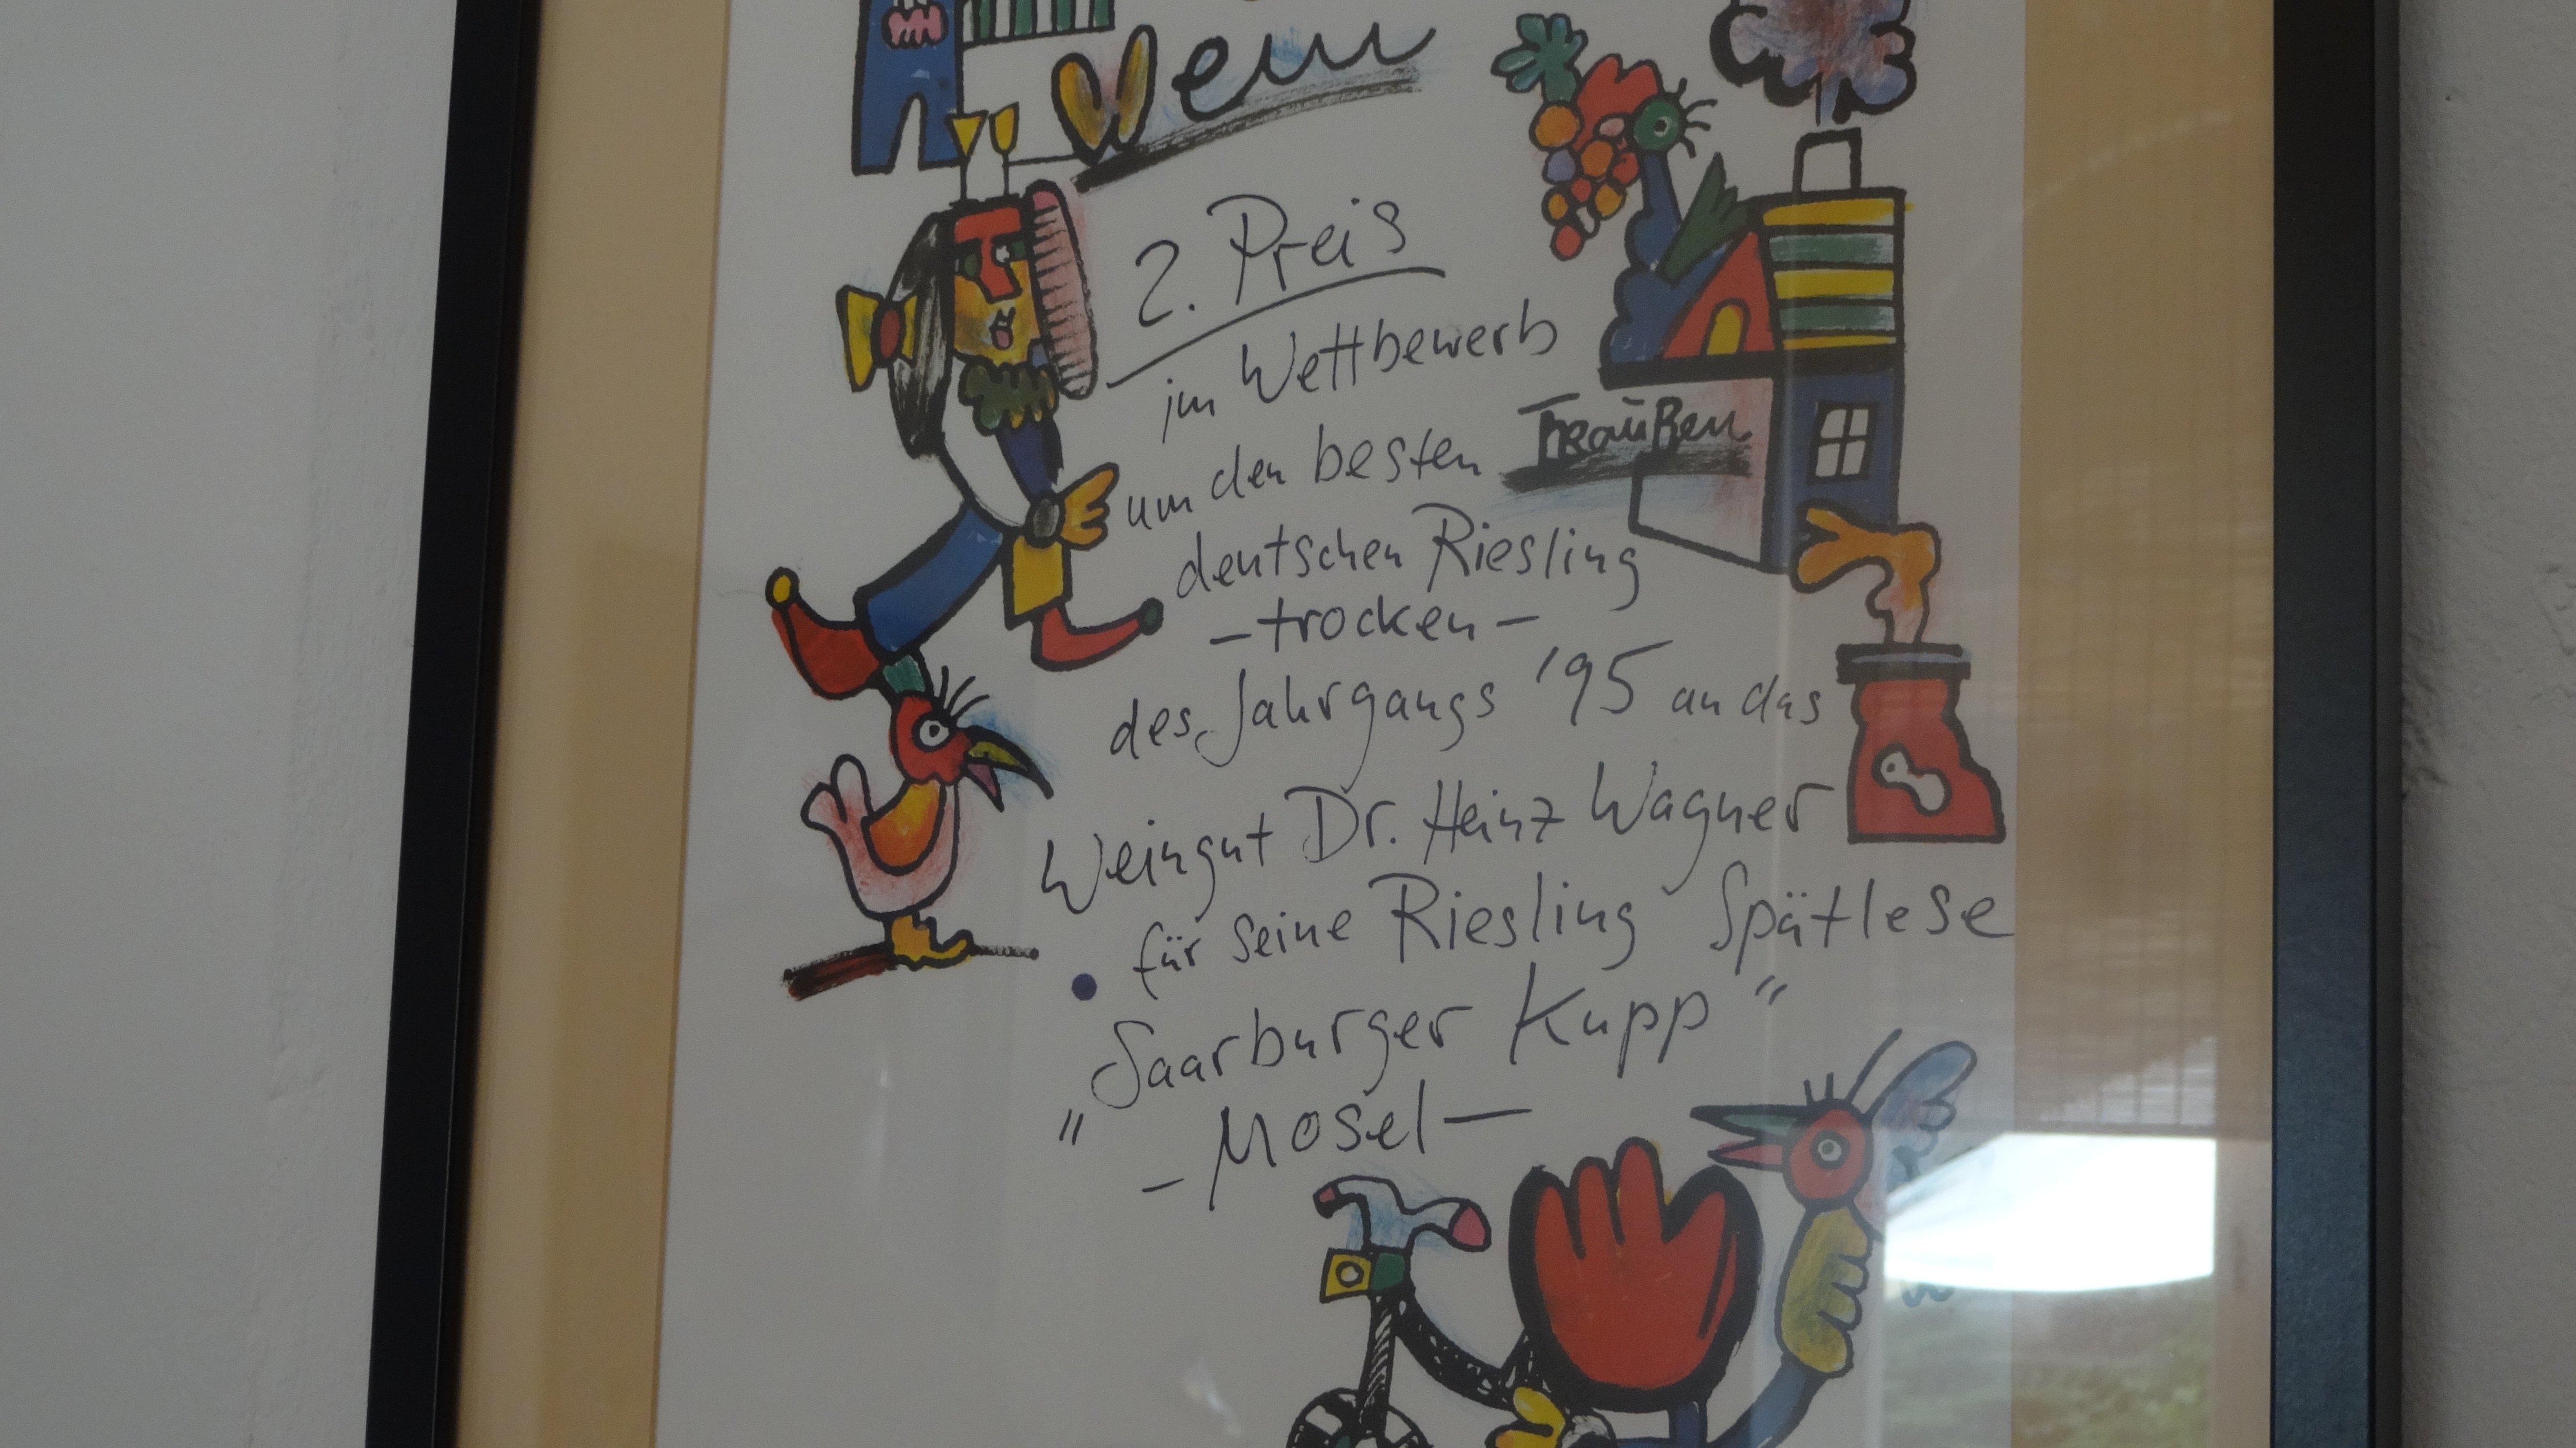 Wein
2. Preis
im Wettbewerb
um den besten
deutschen Riesling
- trocken -
des Jahrgangs '95 an das
Weingut Dr. Heinz Wagner
für seine Riesling Spätlese
"Saarburger Kupp"
- Mosel -
Traußen